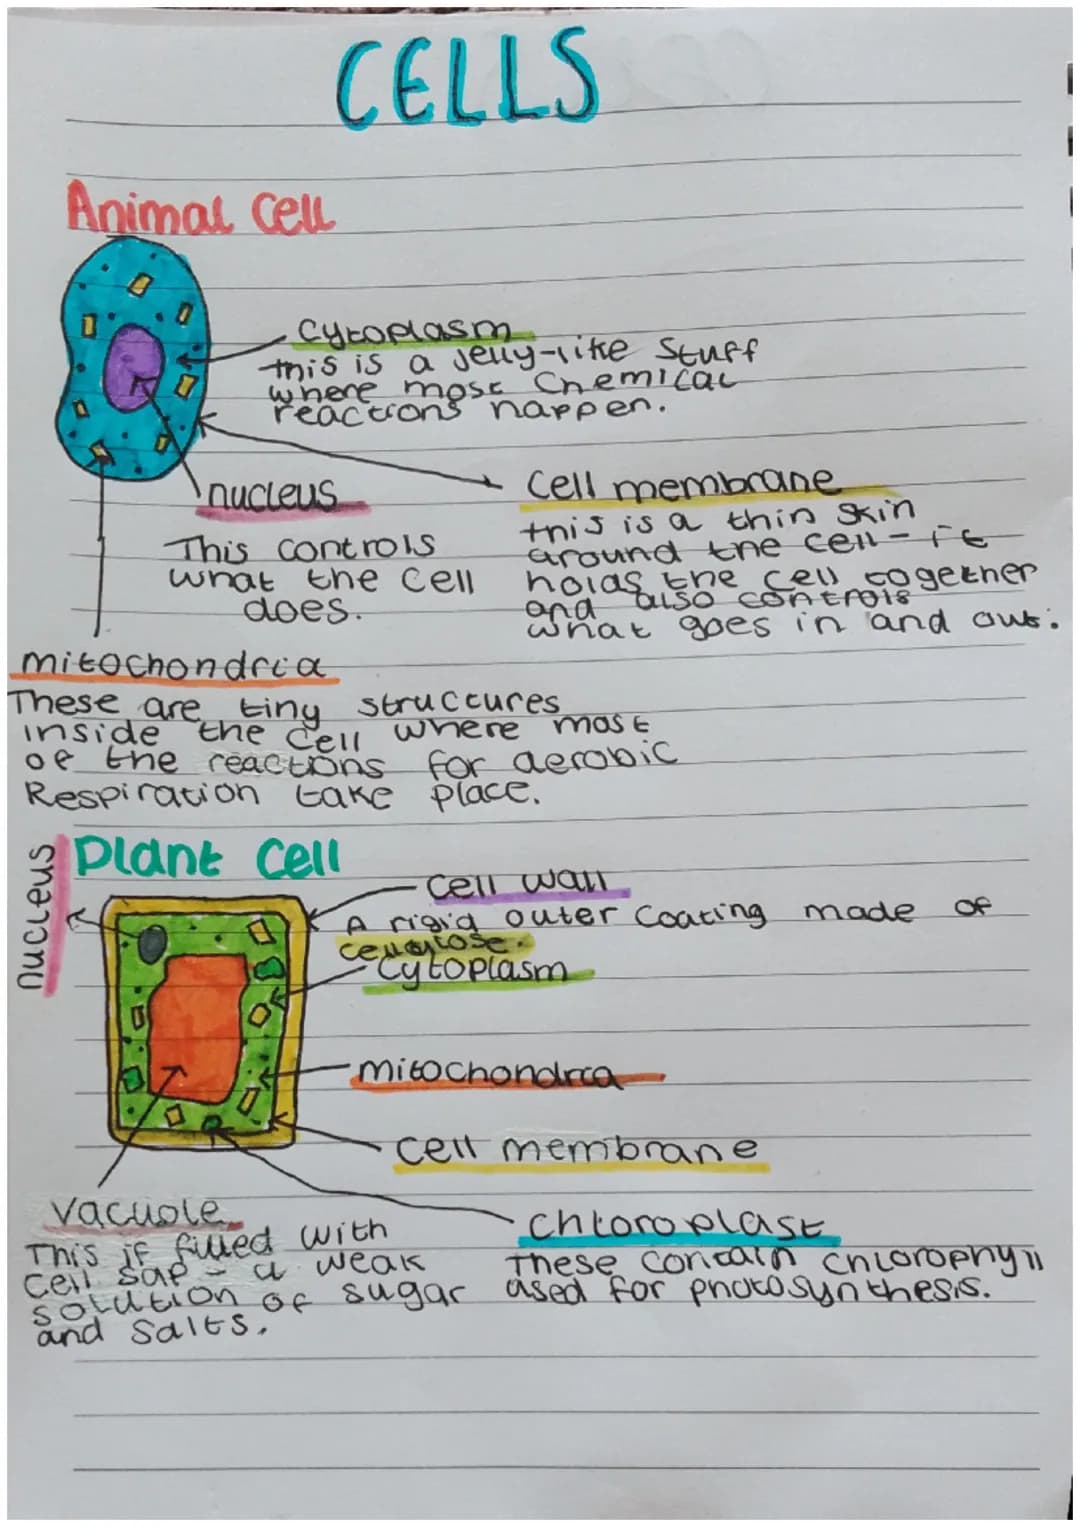 CELLS
Animal cell
Cytoplasm
this is a jelly-like stuff
where most chemical
reactions happen.
nucleus
This controls
what the cell
does.
Cell membrane
this is a thin skin
around the cell - it
holds the cell together
and also controls
what goes in and out.
mitochondria
These are tiny structures
inside the cell where most
of the reactions for aerobic
Respiration take place.
Plant cell
nucleus
cell wall
A rigid outer coating made of
cellulose.
cytoplasm
mitochondria
cell membrane
vacuole
This if filled with
cell sap - a weak
solution of sugar
and salts.
chloroplast
These contain chlorophyll
used for photosynthesis.